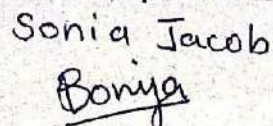 Sonia Jacob
Bonija